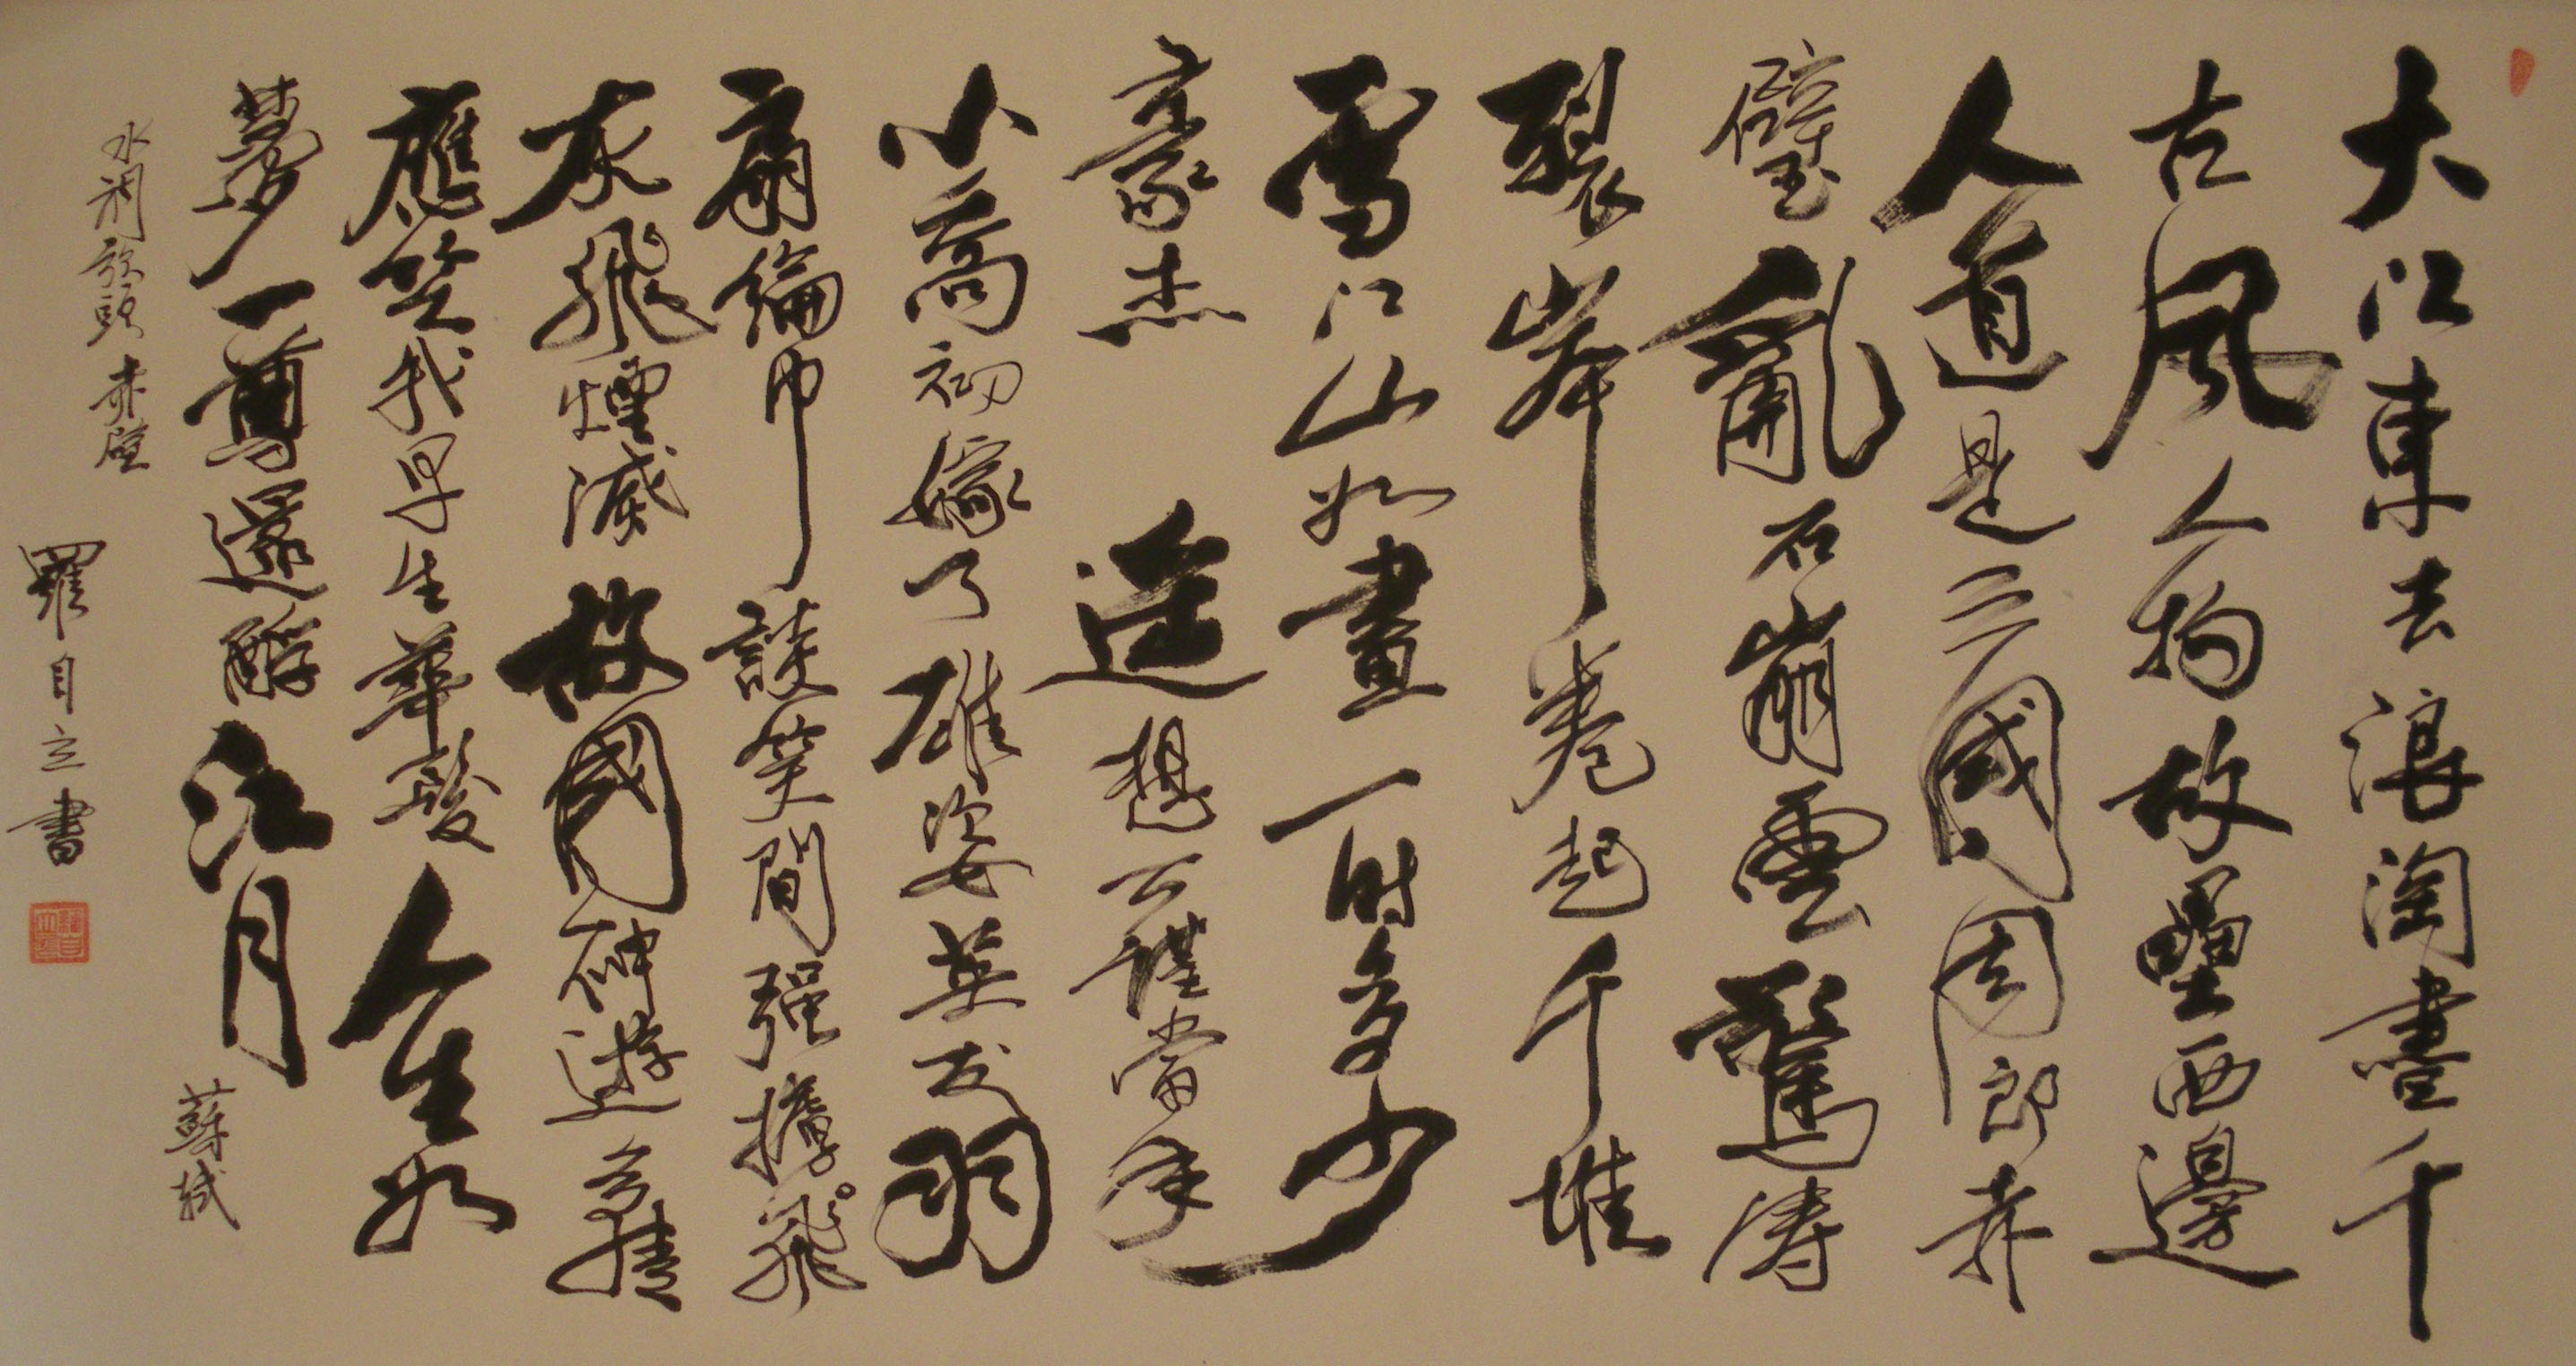 大江東去浪淘盡千
古風人物故壘西邊
人道是三國周郎赤
璧亂石崩雲驚濤
裂岸卷起千堆
雪江山如畫一時多少
豪杰 遙想公謹當年
小喬初嫁了雄姿英发羽
扇綸巾談笑間強擄飛
灰飛煙滅故國神遊多情
應笑我早生華髮人生如
夢一尊還酹江月 蘇軾
水調歌頭 赤壁
羅自立書